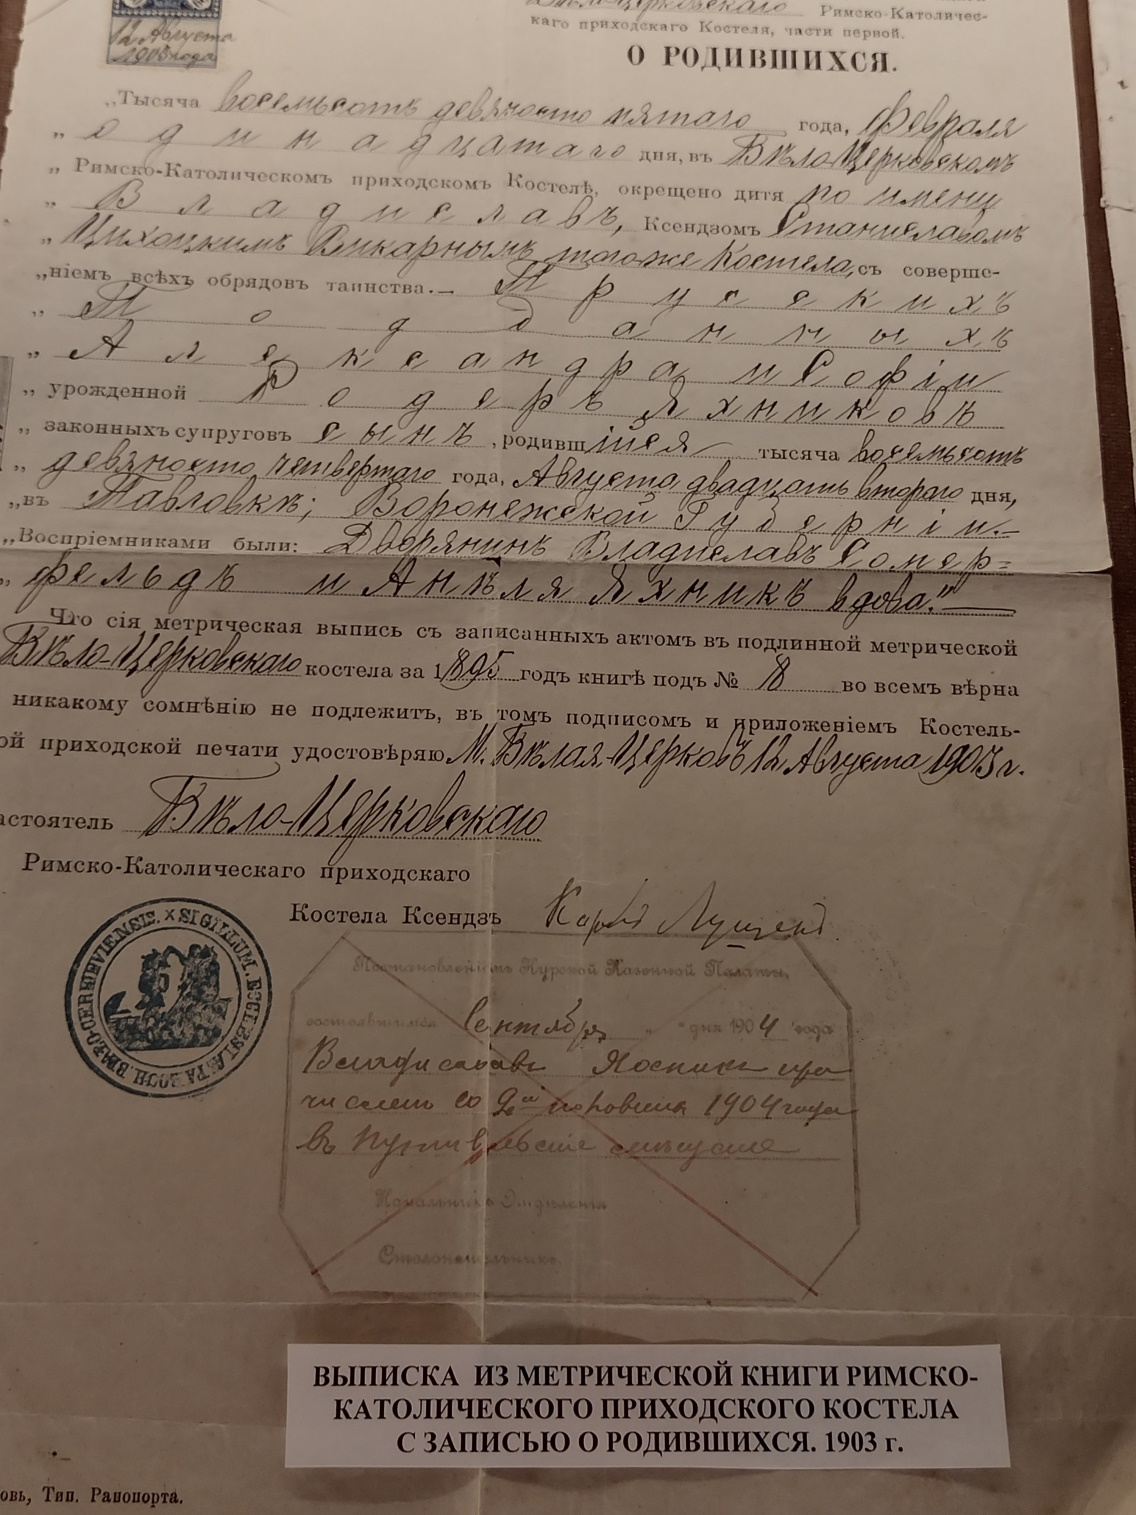 12 Августа
1903 года
Бѣло-Церковскаго Римско-Католичес-
каго приходскаго Костеля, части первой.
О РОДИВШИХСЯ.
„Тысяча восемьсотъ девяносто пятаго года, Февраля
„ одинадцатаго дня, въ Бѣло-Церковскомъ
„ Римско-Католическомъ приходскомъ Костелѣ, окрещено дитя по имени
„ Владиславъ, Ксендзомъ Станиславомъ
„ Цихоцкимъ Викарнымъ тогоже Костела, съ соверше-
„ніемъ всѣхъ обрядовъ таинства.— Прусскихъ
„ Подданныхъ
„ Александра и Софіи
„ урожденной Родеръ Яхниковъ
„ законныхъ супруговъ сынъ, родившійся тысяча восемьсотъ
„ девяносто четвертаго года, Августа двадцать втораго дня,
„въ Павловкѣ; Воронежской Губерніи.—
„Воспріемниками были: Дворянинъ Владиславъ Сомер=
„ фельдъ и Анѣля Яхникъ вдова."—
Что сія метрическая выпись съ записанныхъ актомъ въ подлинной метрической
Бѣло-Церковскаго костела за 1895 годъ книгѣ подъ № 8 во всемъ вѣрна
никакому сомнѣнію не подлежитъ, въ томъ подписомъ и приложеніемъ Костель-
ой приходской печати удостовѣряю М. Бѣлая-Церковь 12 Августа 1903 г.
астоятель Бѣло-Церковскаго
Римско-Католическаго приходскаго
Костела Ксендзъ
SIGILLUM. ECCLESIAE PAROCH. BIAŁOCERKIEVIENSIS.
Постановленіемъ Курской Казенной Палаты,
состоявшимся Сентября „ „ дня 1904 года
Владиславъ Яхникъ при
численъ со 2ой половины 1904 года
въ Путивльскіе
Начальникъ Отдѣленія
Столоначальникъ
ВЫПИСКА ИЗ МЕТРИЧЕСКОЙ КНИГИ РИМСКО-
КАТОЛИЧЕСКОГО ПРИХОДСКОГО КОСТЕЛА
С ЗАПИСЬЮ О РОДИВШИХСЯ. 1903 г.
овь, Тип. Рапопорта.